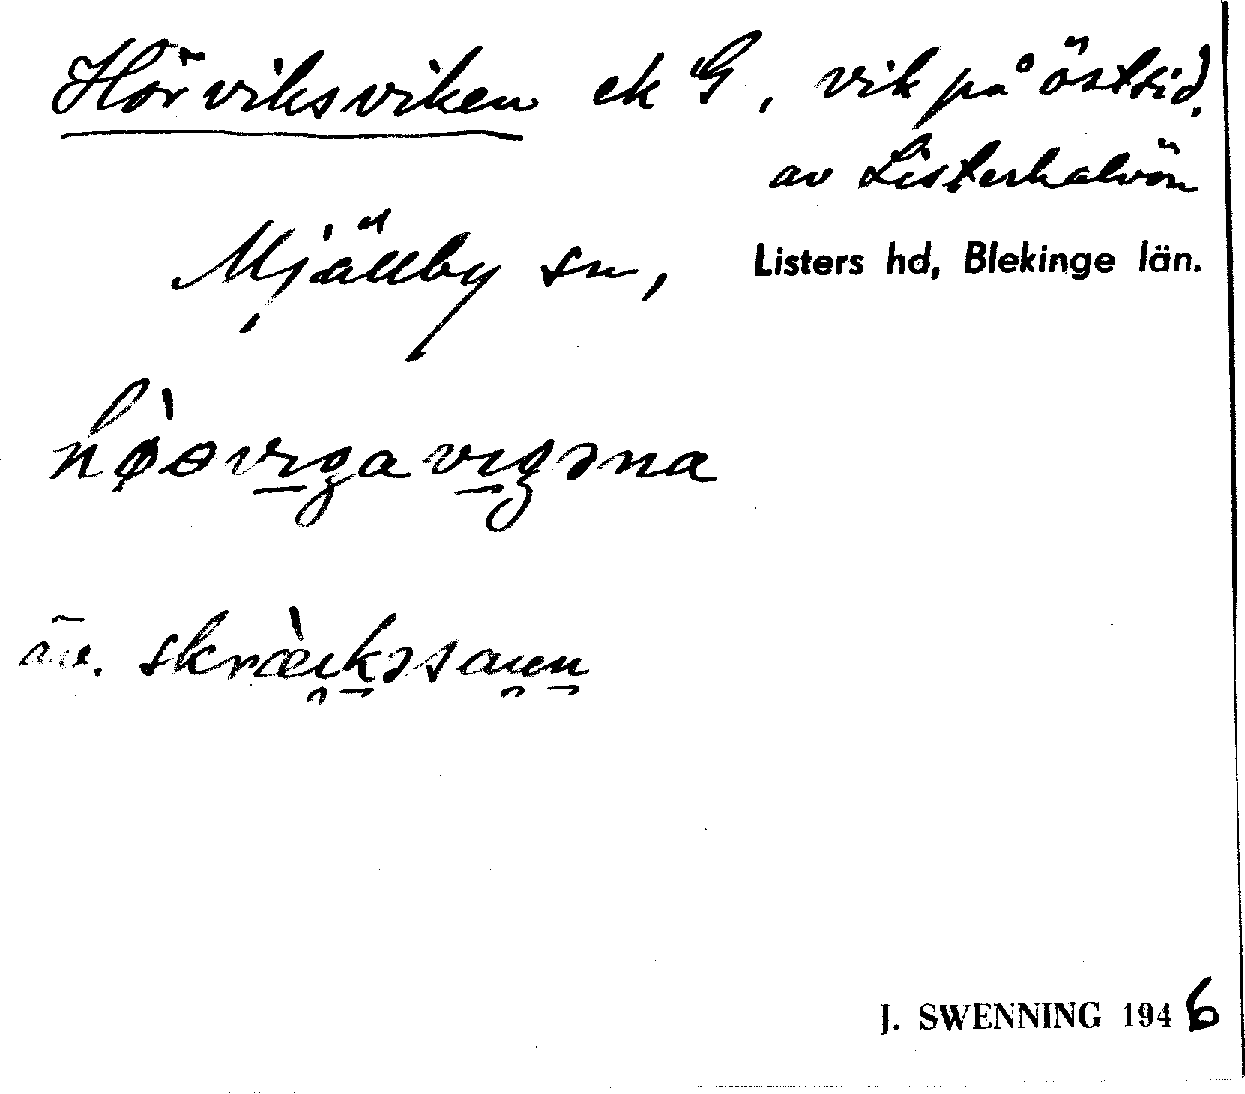 Hörviksviken ek G, vik på östsid.
av Listerhalvön
Mjällby sn, Listers hd, Blekinge län.
hø̀ɵvıgavıgəna
äv. skræ̀ıkəsaıın
J. SWENNING 1946